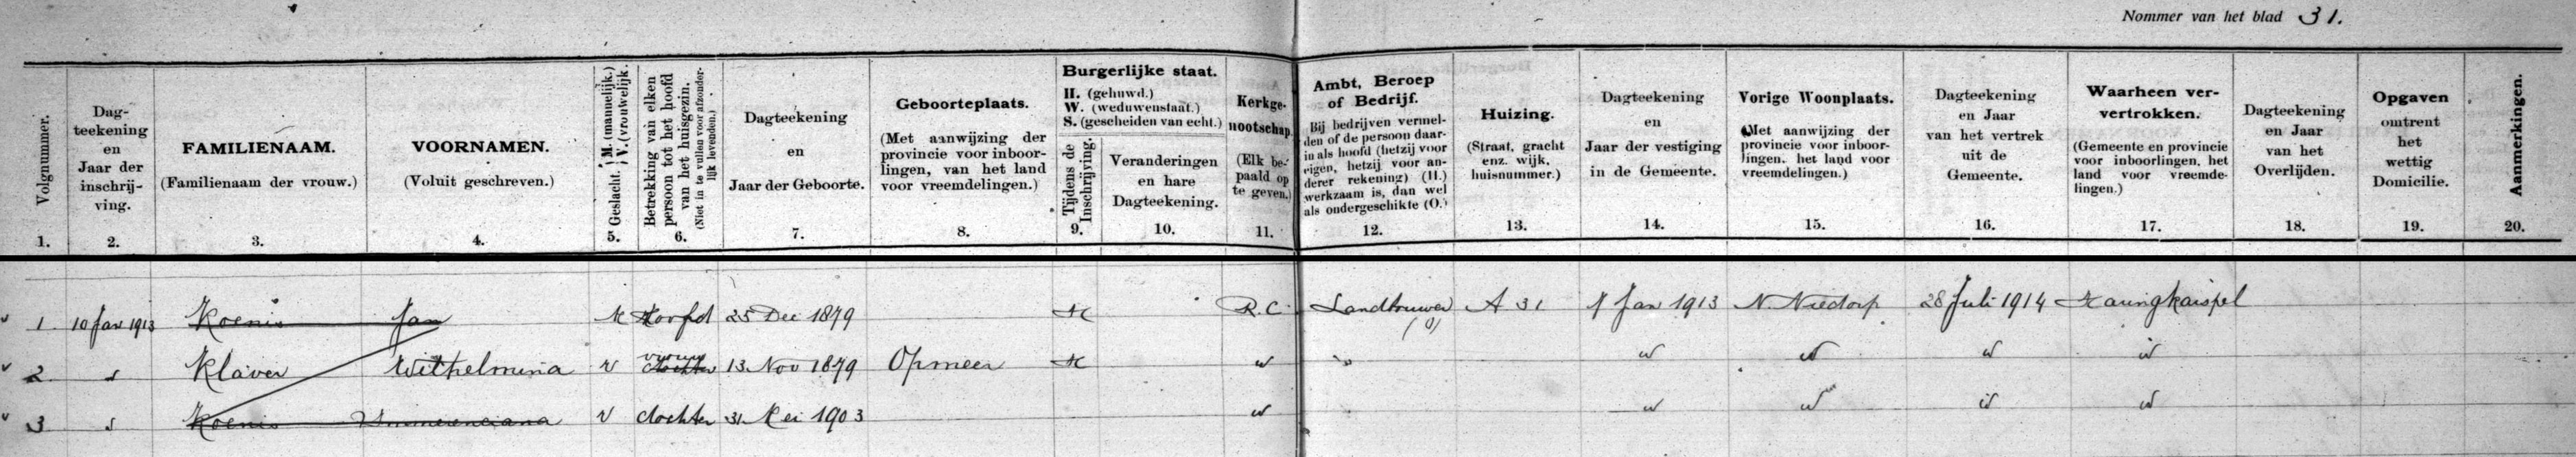 Nommer van het blad 31.
Volgnummer.
1.
Dag-
teekening
en
Jaar der
inschrij-
ving.
2.
FAMILIENAAM.
(Familienaam der vrouw.)
3.
VOORNAMEN.
(Voluit geschreven.)
4.
Geslacht. M. (mannelijk.) V. (vrouwelijk.
5.
Betrekking van elken
persoon tot het hoofd
van het huisgezin.
(Niet in te vullen voor afzonder-
lijk levenden.)
6.
Dagteekening
en
Jaar der Geboorte.
7.
Geboorteplaats.
(Met aanwijzing der
provincie voor inboor-
lingen, van het land
voor vreemdelingen.)
8.
Burgerlijke staat.
H. (gehuwd.)
W. (weduwenstaat.)
S. (gescheiden van echt.)
Tijdens de
Inschrijving.
9.
Veranderingen
en hare
Dagteekening.
10.
Kerkge-
nootschap.
(Elk be-
paald op
te geven.)
11.
Ambt, Beroep
of Bedrijf.
Bij bedrijven vermel-
den of de persoon daar-
in als hoofd (hetzij voor
eigen, hetzij voor an-
derer rekening) (H.)
werkzaam is, dan wel
als ondergeschikte (O.)
12.
Huizing.
(Straat, gracht
enz. wijk,
huisnummer.)
13.
Dagteekening
en
Jaar der vestiging
in de Gemeente.
14.
Vorige Woonplaats.
(Met aanwijzing der
provincie voor inboor-
lingen. het land voor
vreemdelingen.)
15.
Dagteekening
en Jaar
van het vertrek
uit de
Gemeente.
16.
Waarheen ver-
vertrokken.
(Gemeente en provincie
voor inboorlingen, het
land voor vreemde-
lingen.)
17.
Dagteekening
en Jaar
van het
Overlijden.
18.
Opgaven
omtrent
het
wettig
Domicilie.
19.
Aanmerkingen.
20.
1. 10 Jan 1913 Koenis Jan M Hoofd 25 Dec 1879 H R.C. Landbouwer (O) A 31 1 Jan 1913 N. Niedorp 28 Juli 1914 Haringkarspel
vrouw
2 " Klaver Wilhelmina V dochter 13 Nov 1879 Opmeer H " " " " " "
3 " Koenis Emmerenciana V dochter 31 Mei 1903 " " " " "